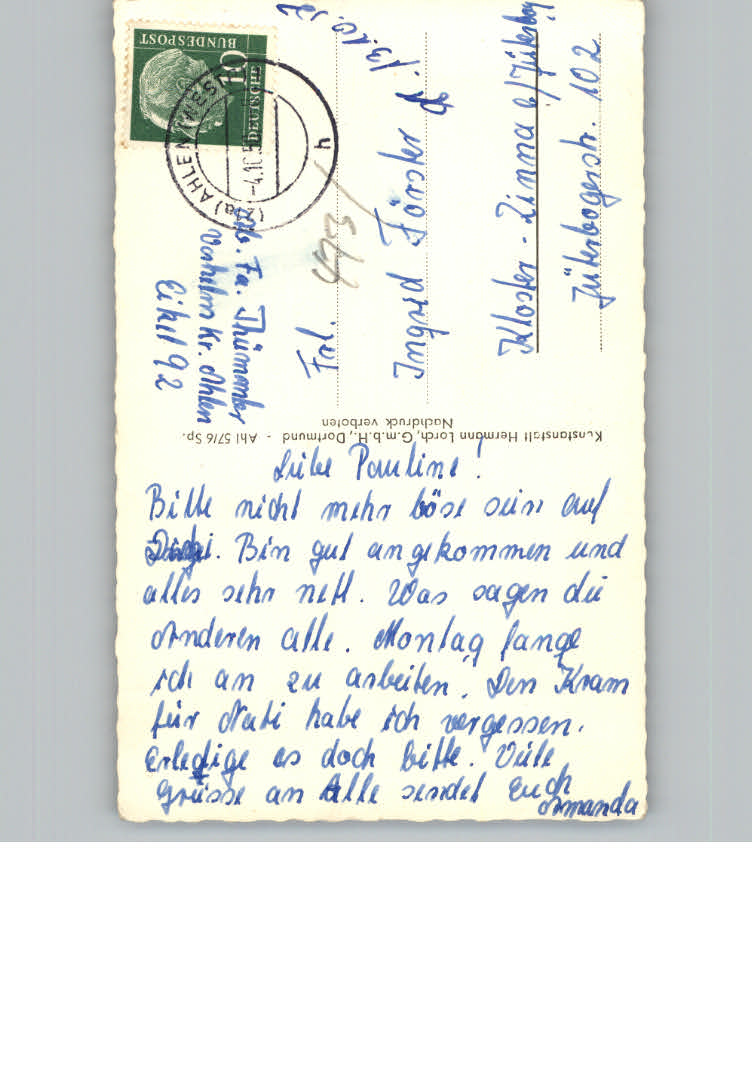 Liebe Pauline!
Bitte nicht mehr böse sein auf
. Bin gut angekommen und
alles sehr nett. Was sagen die
Anderen alle. Montag fange
ich an zu arbeiten. Den Kram
für habe ich vergessen.
Erledige es doch bitte. Viele
Grüsse an Alle sendet Euch
Amanda
Kunstanstalt Hermann Lorch, G.m.b.H., Dortmund - Ahl 57/6 Sp.
Nachdruck verboten
Frl.
Ingrid Förster
Kloster-Zinna b/Jüterbog
Jüterbogerstr. 102
13.10.57
Fa.
Vorhelm Kr. Ahlen
92
DEUTSCHE
BUNDESPOST
10
AHLEN (WESTF)
-4.10.5
h